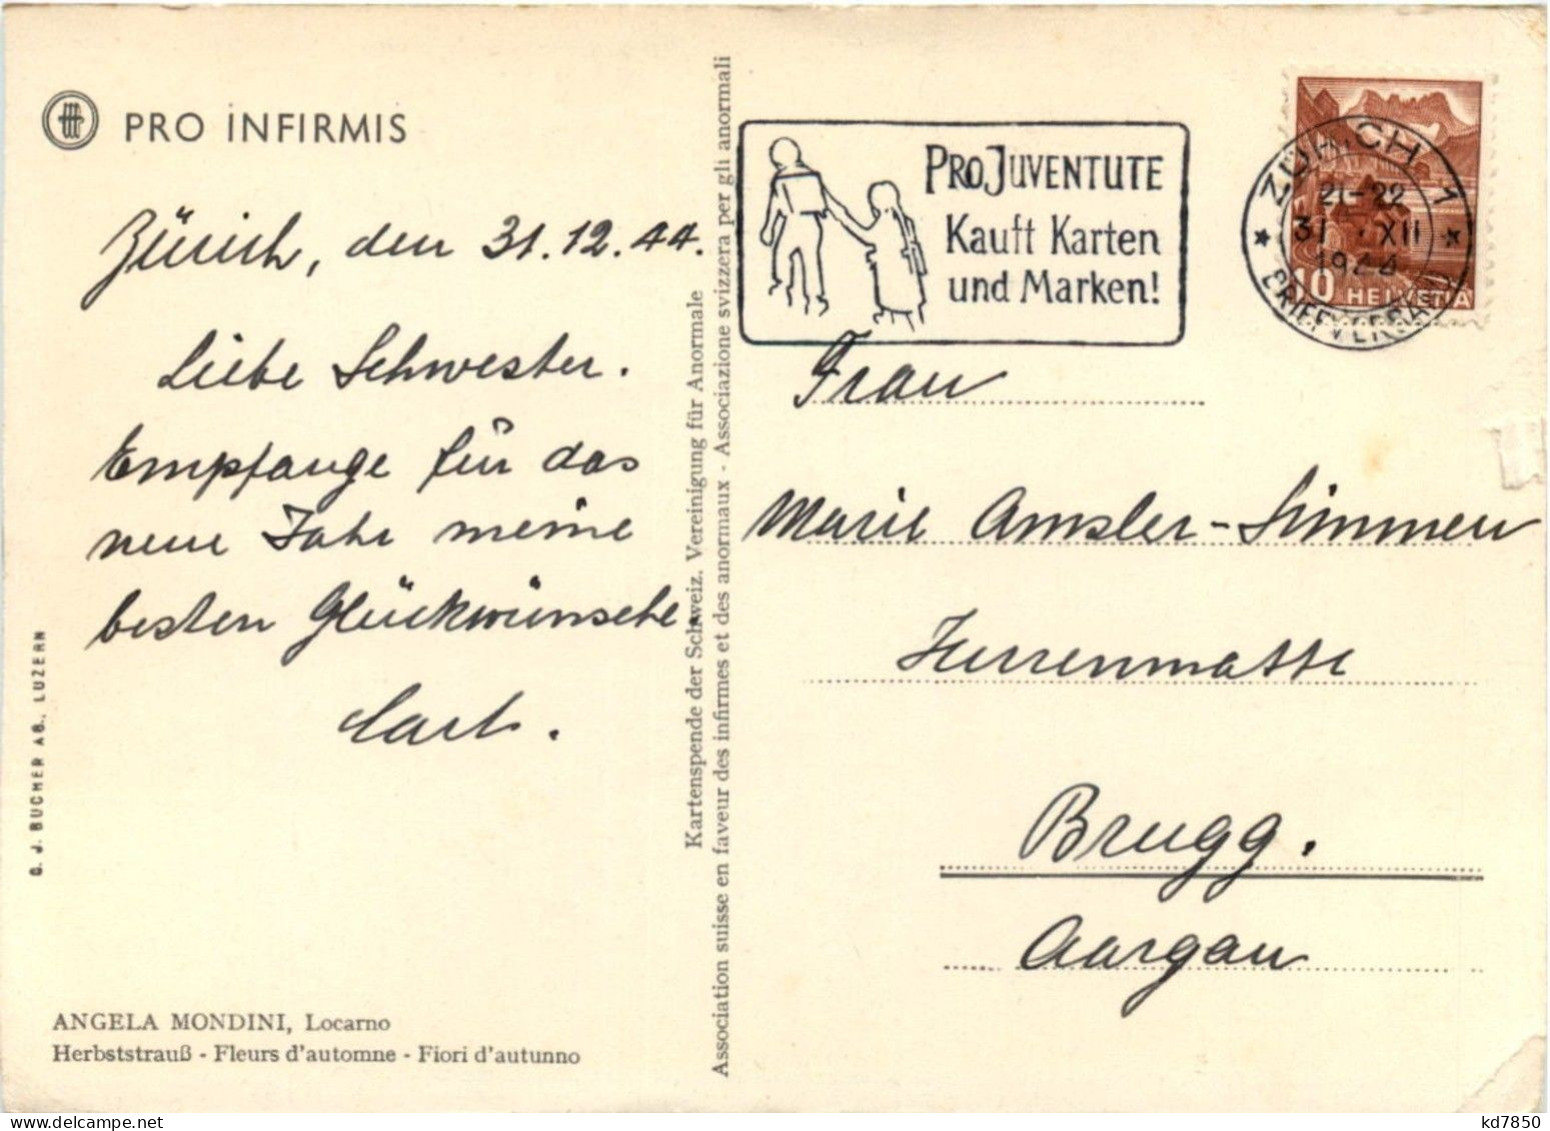 PRO INFIRMIS
Zürich, den 31.12.44.
Liebe Schwester.
Empfange für das
neue Jahr meine
besten Glückwünsche.
Carl.
G. J. BUCHER AG., LUZERN
ANGELA MONDINI, Locarno
Herbststrauß - Fleurs d'automne - Fiori d'autunno
Kartenspende der Schweiz. Vereinigung für Anormale
Association suisse en faveur des infirmes et des anormaux - Associazione svizzera per gli anormali
PRO JUVENTUTE
Kauft Karten
und Marken!
ZÜRICH 1
21-22
31. XII
1944
BRIEFVERSAND
10 HELVETIA
Frau
Marie Amsler-Simmen
Herrenmatte
Brugg.
Aargau
kd7850